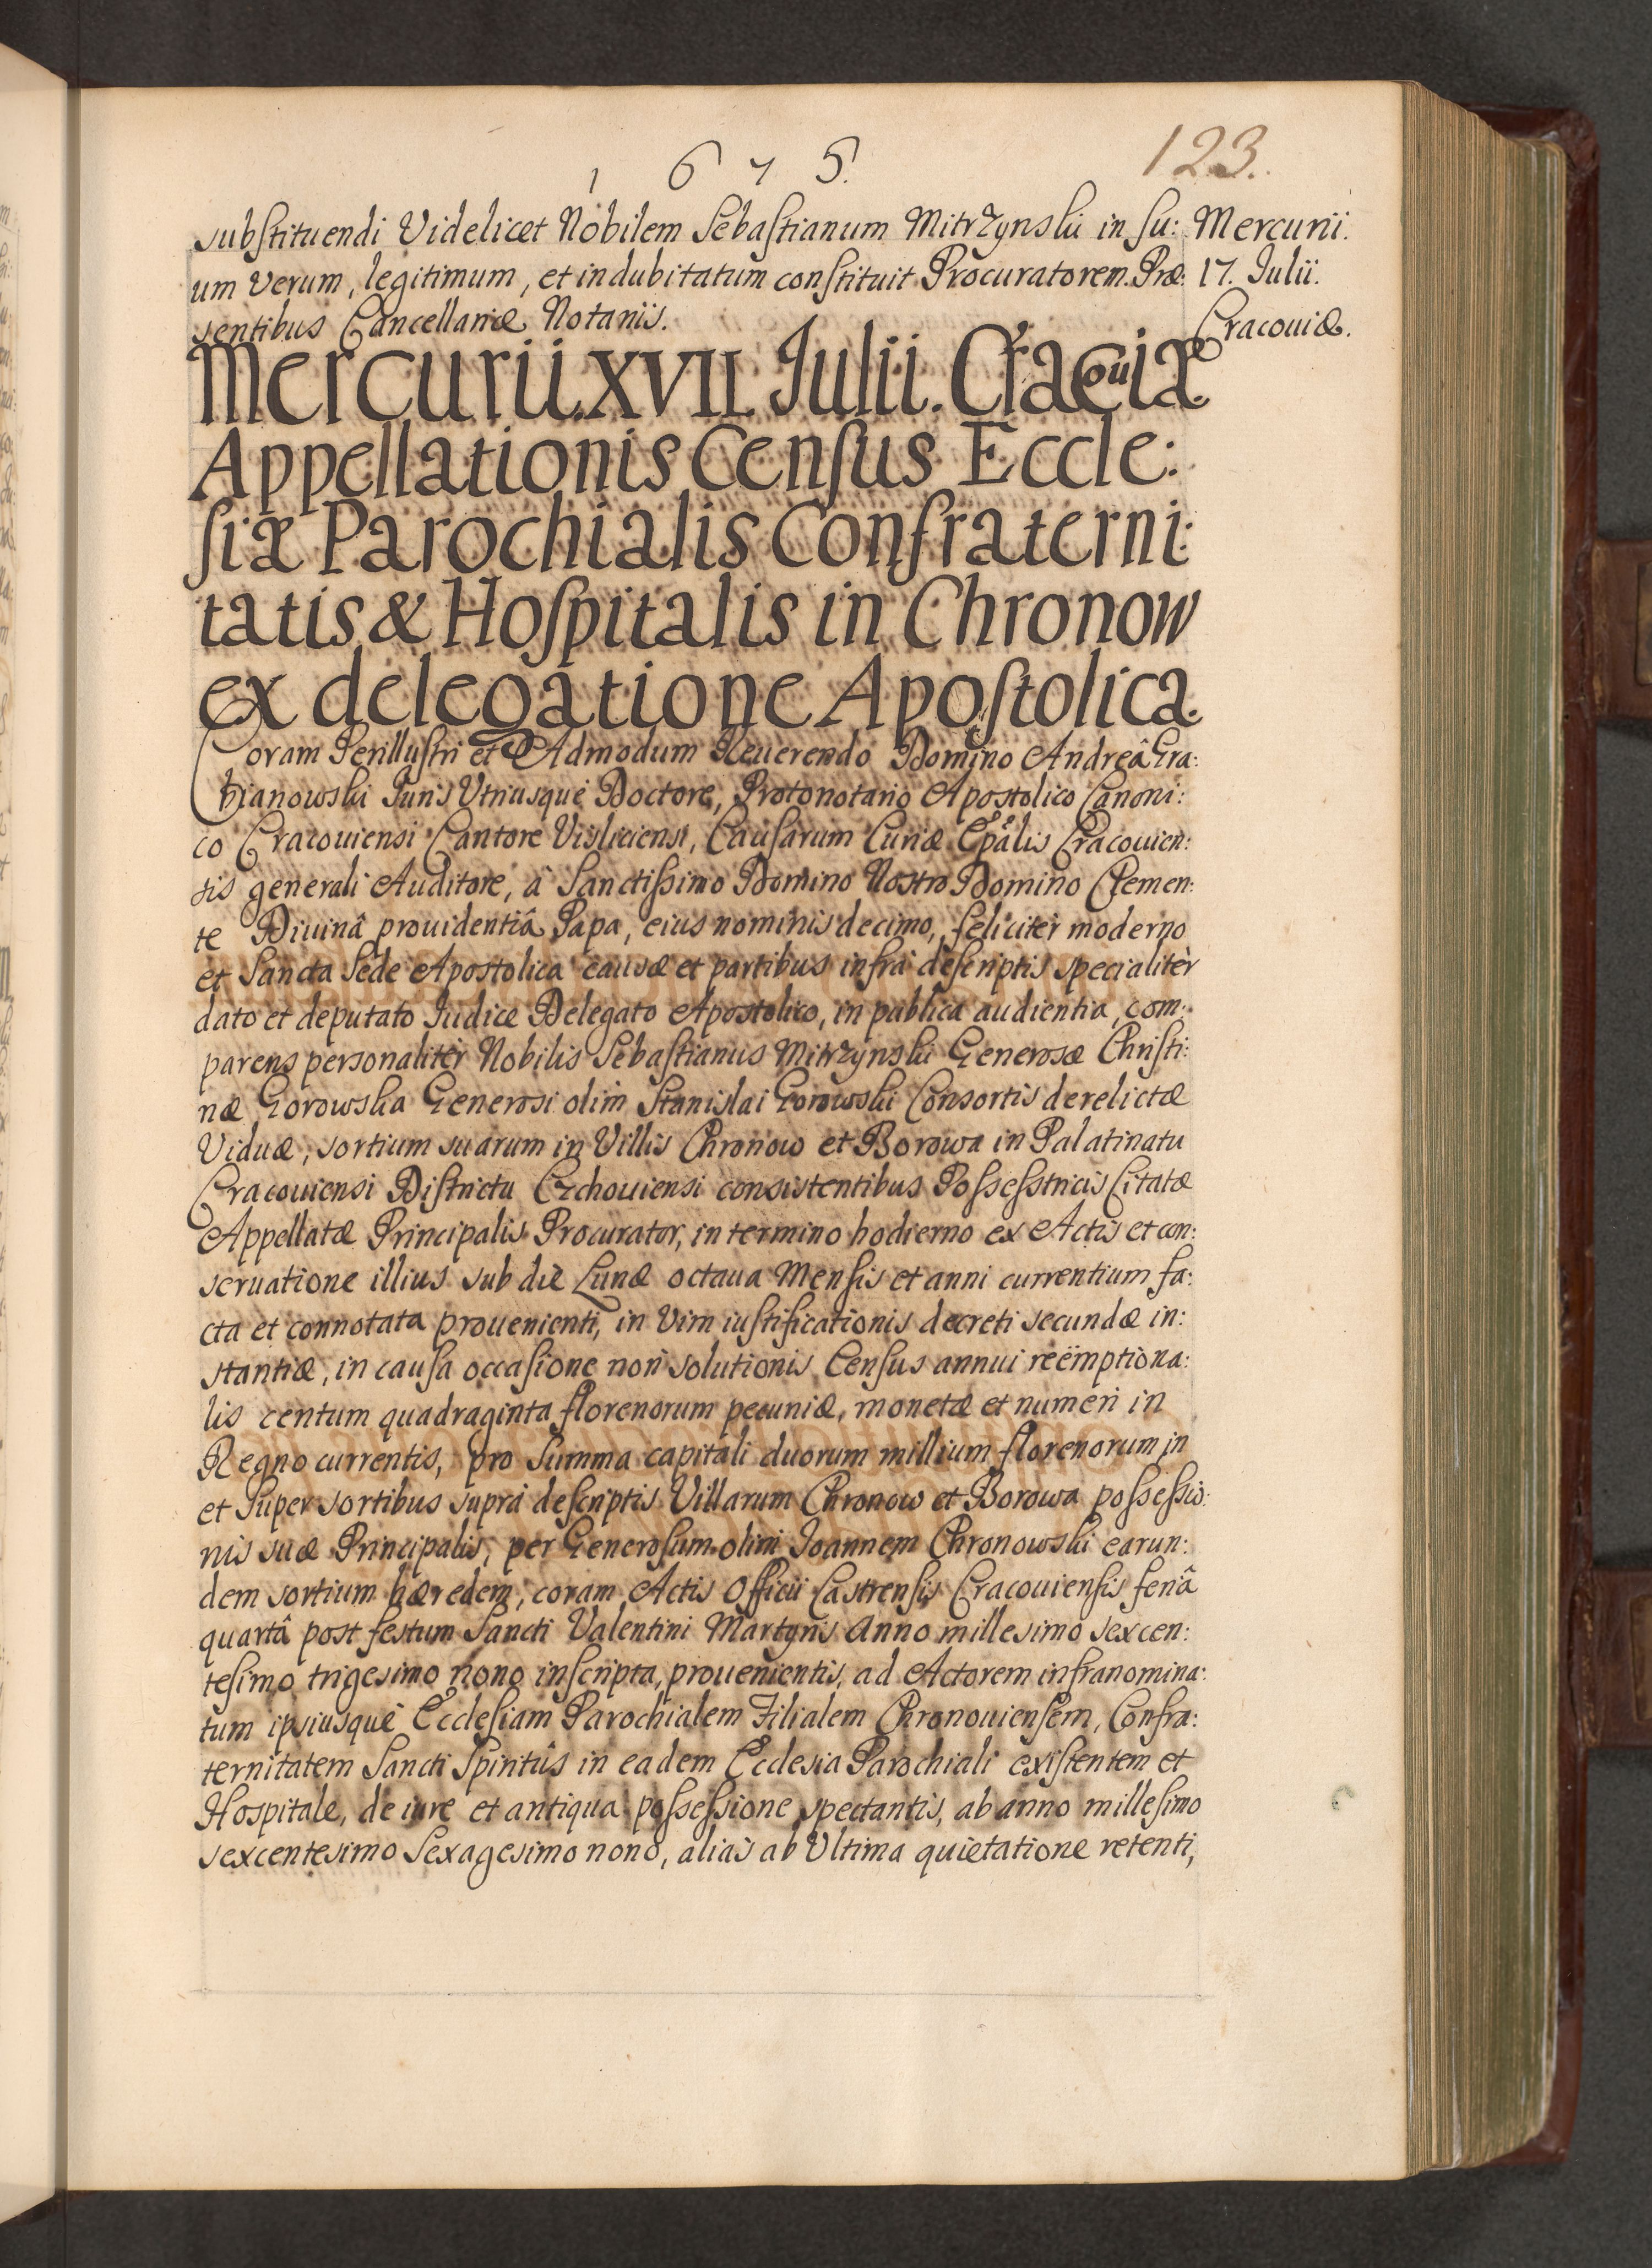 1675.
123.
substituendi Videlicet Nobilem Sebastianum Mitrzynski in su:
um verum, legitimum, et indubitatum constituit Procuratorem. Præ:
sentibus Cancellariæ Notariis.
Mercurii.
17. Julii.
Cracouiæ.
Mercurii. XVII. Julii. Cracouiæ
Appellationis Census Eccle:
siæ Parochialis Confraterni:
tatis & Hospitalis in Chronow
ex delegatione Apostolica.
Coram Perillustri et Admodum Reuerendo Domino Andreâ Gra:
bianowski Juris Utriusque Doctore, Protonotario Apostolico Canoni:
co Cracouiensi Cantore Visliciensi, Causarum Curiæ Epãlis Cracouien:
sis generali Auditore, â Sanctissimo Domino Nostro Domino Clemen:
te Diuinâ prouidentiâ Papa, eius nominis decimo, feliciter moderno
et Sancta Sede Apostolica causæ et partibus infra descriptis specialitèr
dato et deputato Iudice Delegato Apostolico, in publica audientia, com:
parens personalitèr Nobilis Sebastianus Mitrzynski Generosæ Christi:
næ Gorowska Generosi olim Stanislai Gorowski Consortis derelictæ
Viduæ, sortium suarum in Villis Chronow et Borowa in Palatinatu
Cracouiensi Districtu Czchouiensi consistentibus Possesstricis Citatæ
Appellatæ Principalis Procurator, in termino hodierno ex Actis et con:
seruatione illius sub die Lunæ octaua Mensis et anni currentium fa:
cta et connotata prouenienti, in vim iustificationis decreti secundæ in:
stantiæ, in causa occasione non solutionis Census annui reëmptiona:
lis centum quadraginta florenorum pecuniæ, monetæ et numeri in
Regno currentis, pro Summa capitali duorum millium florenorum in
et super sortibus supra descriptis Villarum Chronow et Borowa possessio:
nis suæ Principalis, per Generosum olim Joannem Chronowski earun:
dem sortium hæredem, coram Actis Officii Castrensis Cracouiensis feriâ
quartâ post festum Sancti Valentini Martyris Anno millesimo sexcen:
tesimo trigesimo nono inscripta, prouenientis, ad Actorem infranomina:
tum ipsiusque Ecclesiam Parochialem Filialem Chronouiensem, Confra:
ternitatem Sancti Spiritûs in eadem Ecclesia Parochiali existentem et
Hospitale, de iure et antiqua possessione spectantis, ab anno millesimo
sexcentesimo Sexagesimo nono, alias ab Ultima quietatione retenti,